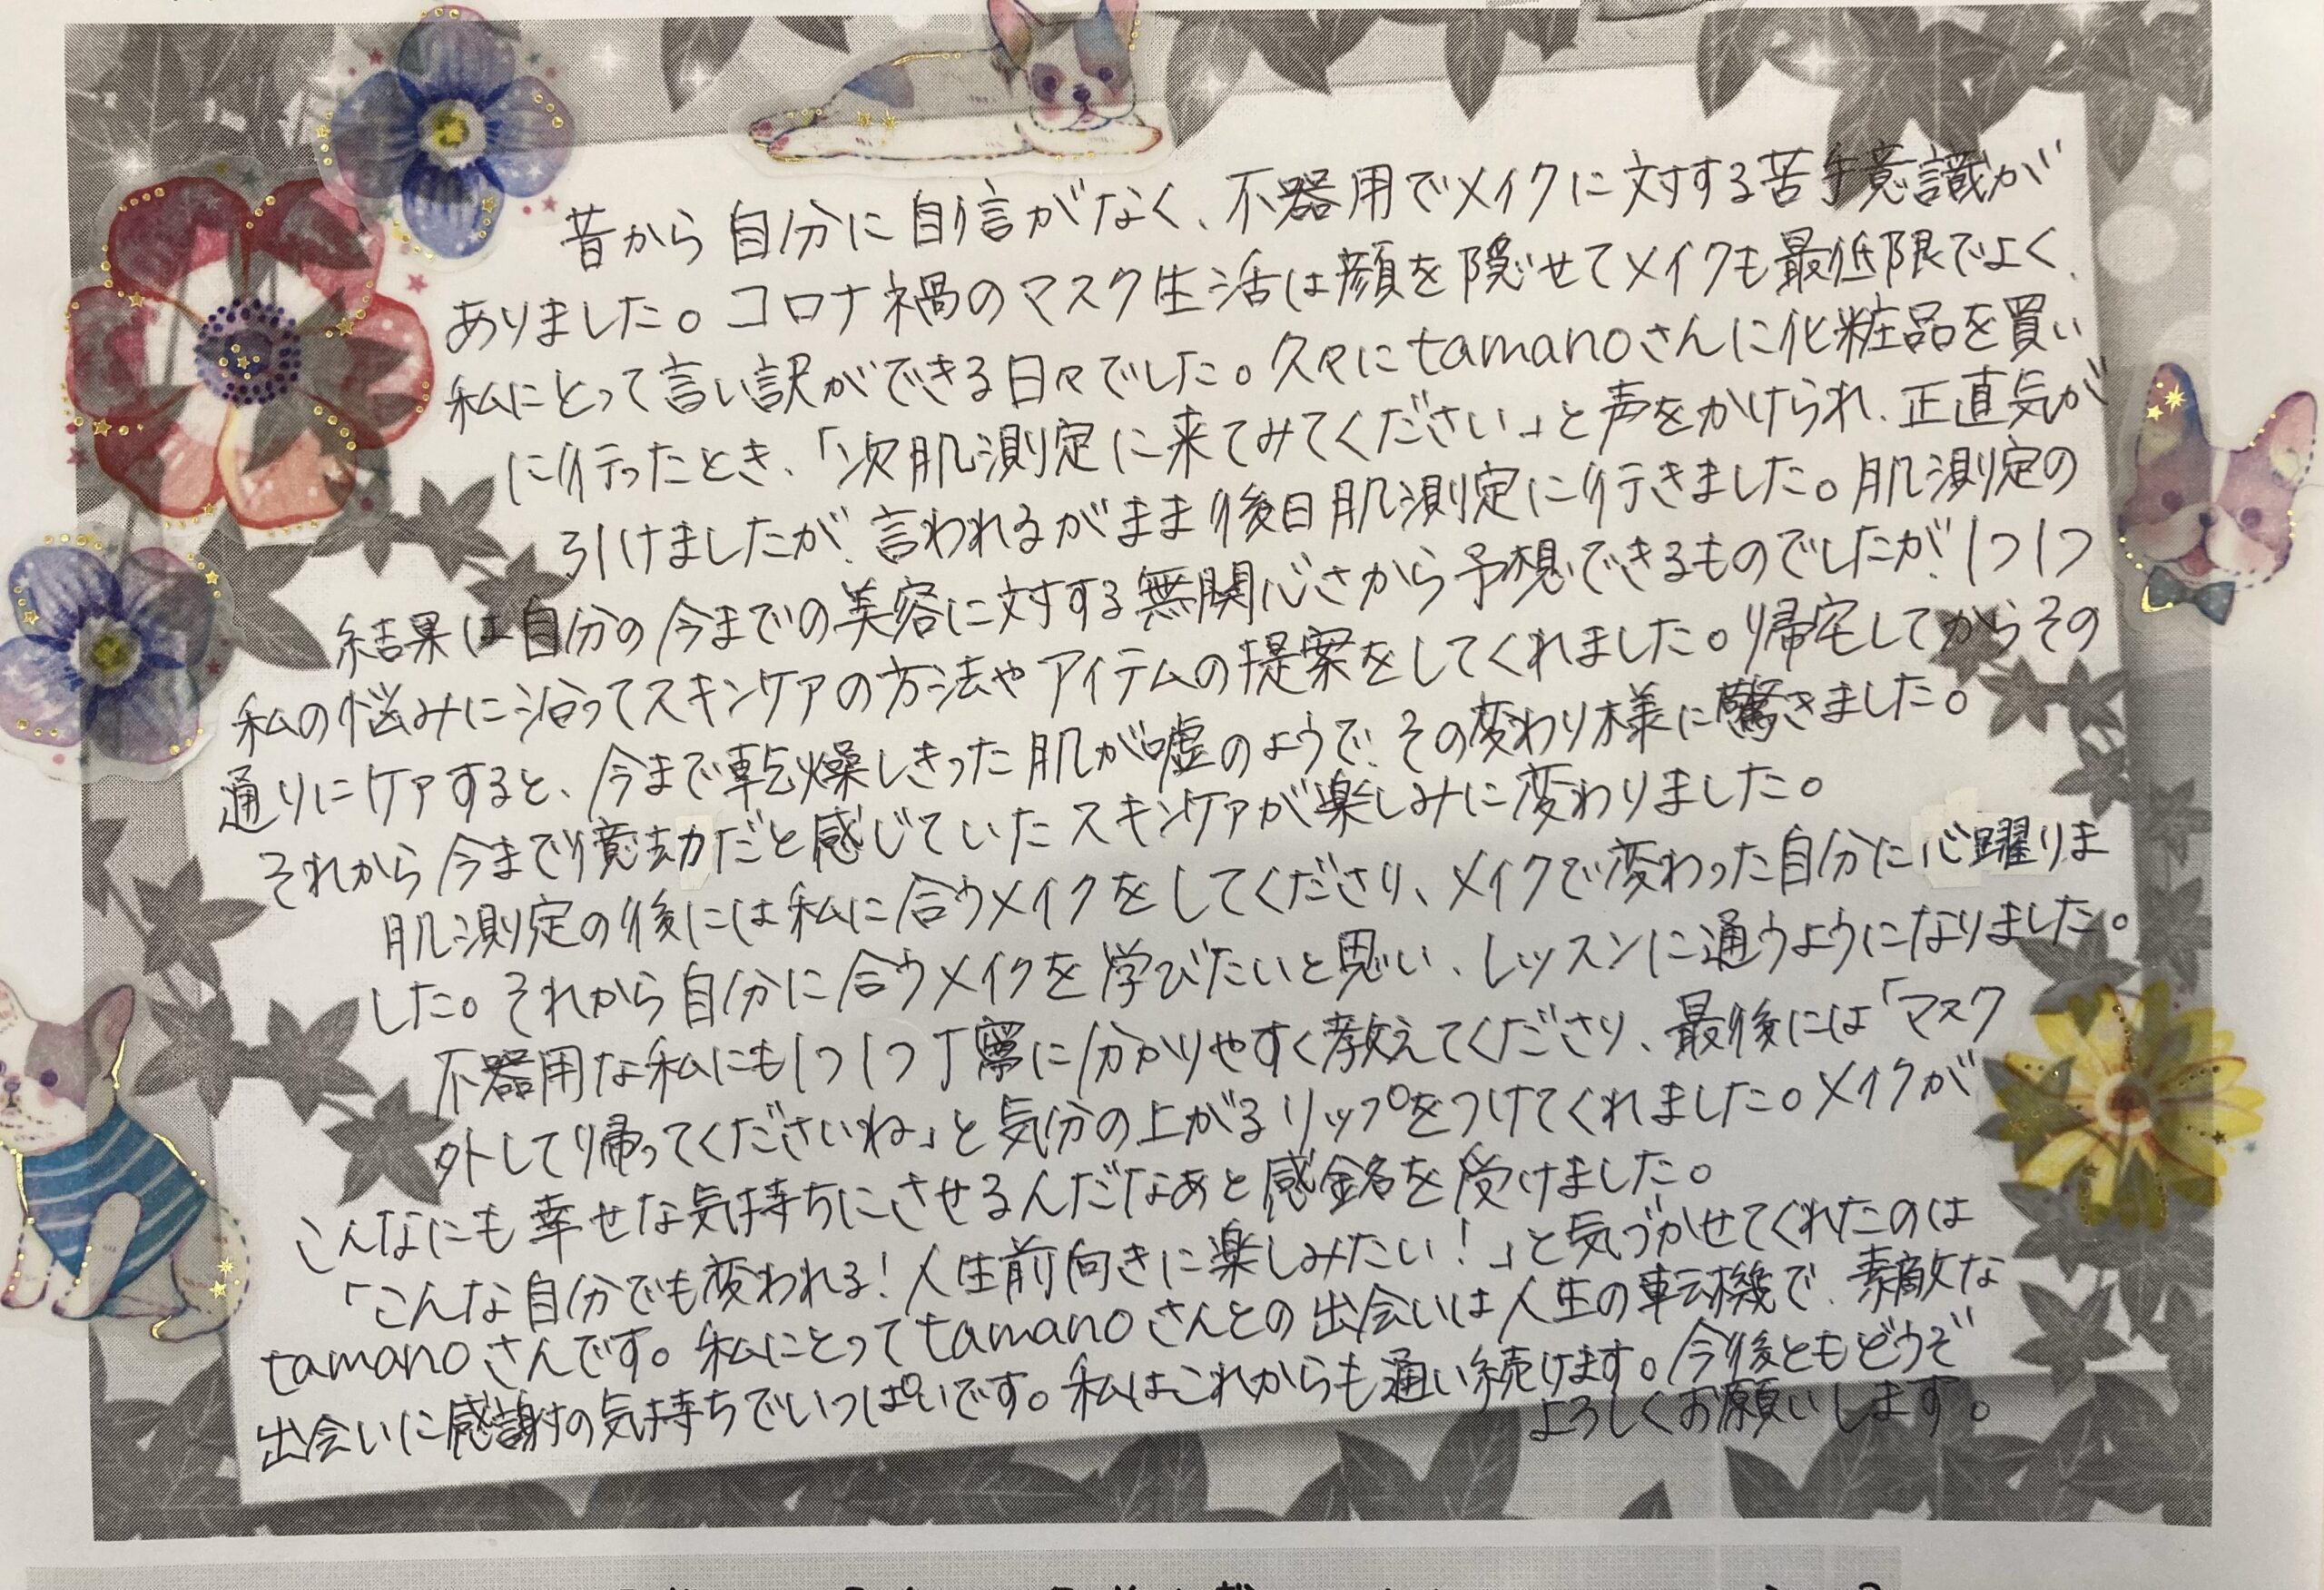 昔から自分に自信がなく、不器用でメイクに対する苦手意識が
ありました。コロナ禍のマスク生活は顔を隠せてメイクも最低限でよく、
私にとって言い訳ができる日々でした。久々にtamanoさんに化粧品を買い
に行ったとき、「次肌測定に来てみてください」と声をかけられ、正直気が
引けましたが、言われるがまま後日肌測定に行きました。肌測定の
結果は自分の今までの美容に対する無関心さから予想できるものでしたが、1つ1つ
私の悩みに沿ってスキンケアの方法やアイテムの提案をしてくれました。帰宅してからその
通りにケアすると、今まで乾燥しきった肌が嘘のようで、その変わり様に驚きました。
それから今まで億劫だと感じていたスキンケアが楽しみに変わりました。
肌測定の後には私に合うメイクをしてくださり、メイクで変わった自分に心躍りま
した。それから自分に合うメイクを学びたいと思い、レッスンに通うようになりました。
不器用な私にも1つ1つ丁寧に分かりやすく教えてくださり、最後には「マスク
外して帰ってくださいね」と気分の上がるリップをつけてくれました。メイクが
こんなにも幸せな気持ちにさせるんだなぁと感銘を受けました。
「こんな自分でも変われる!人生前向きに楽しみたい!」と気づかせてくれたのは
tamanoさんです。私にとってtamanoさんとの出会いは人生の転機で、素敵な
出会いに感謝の気持ちでいっぱいです。私はこれからも通い続けます。今後ともどうぞ
よろしくお願いします。